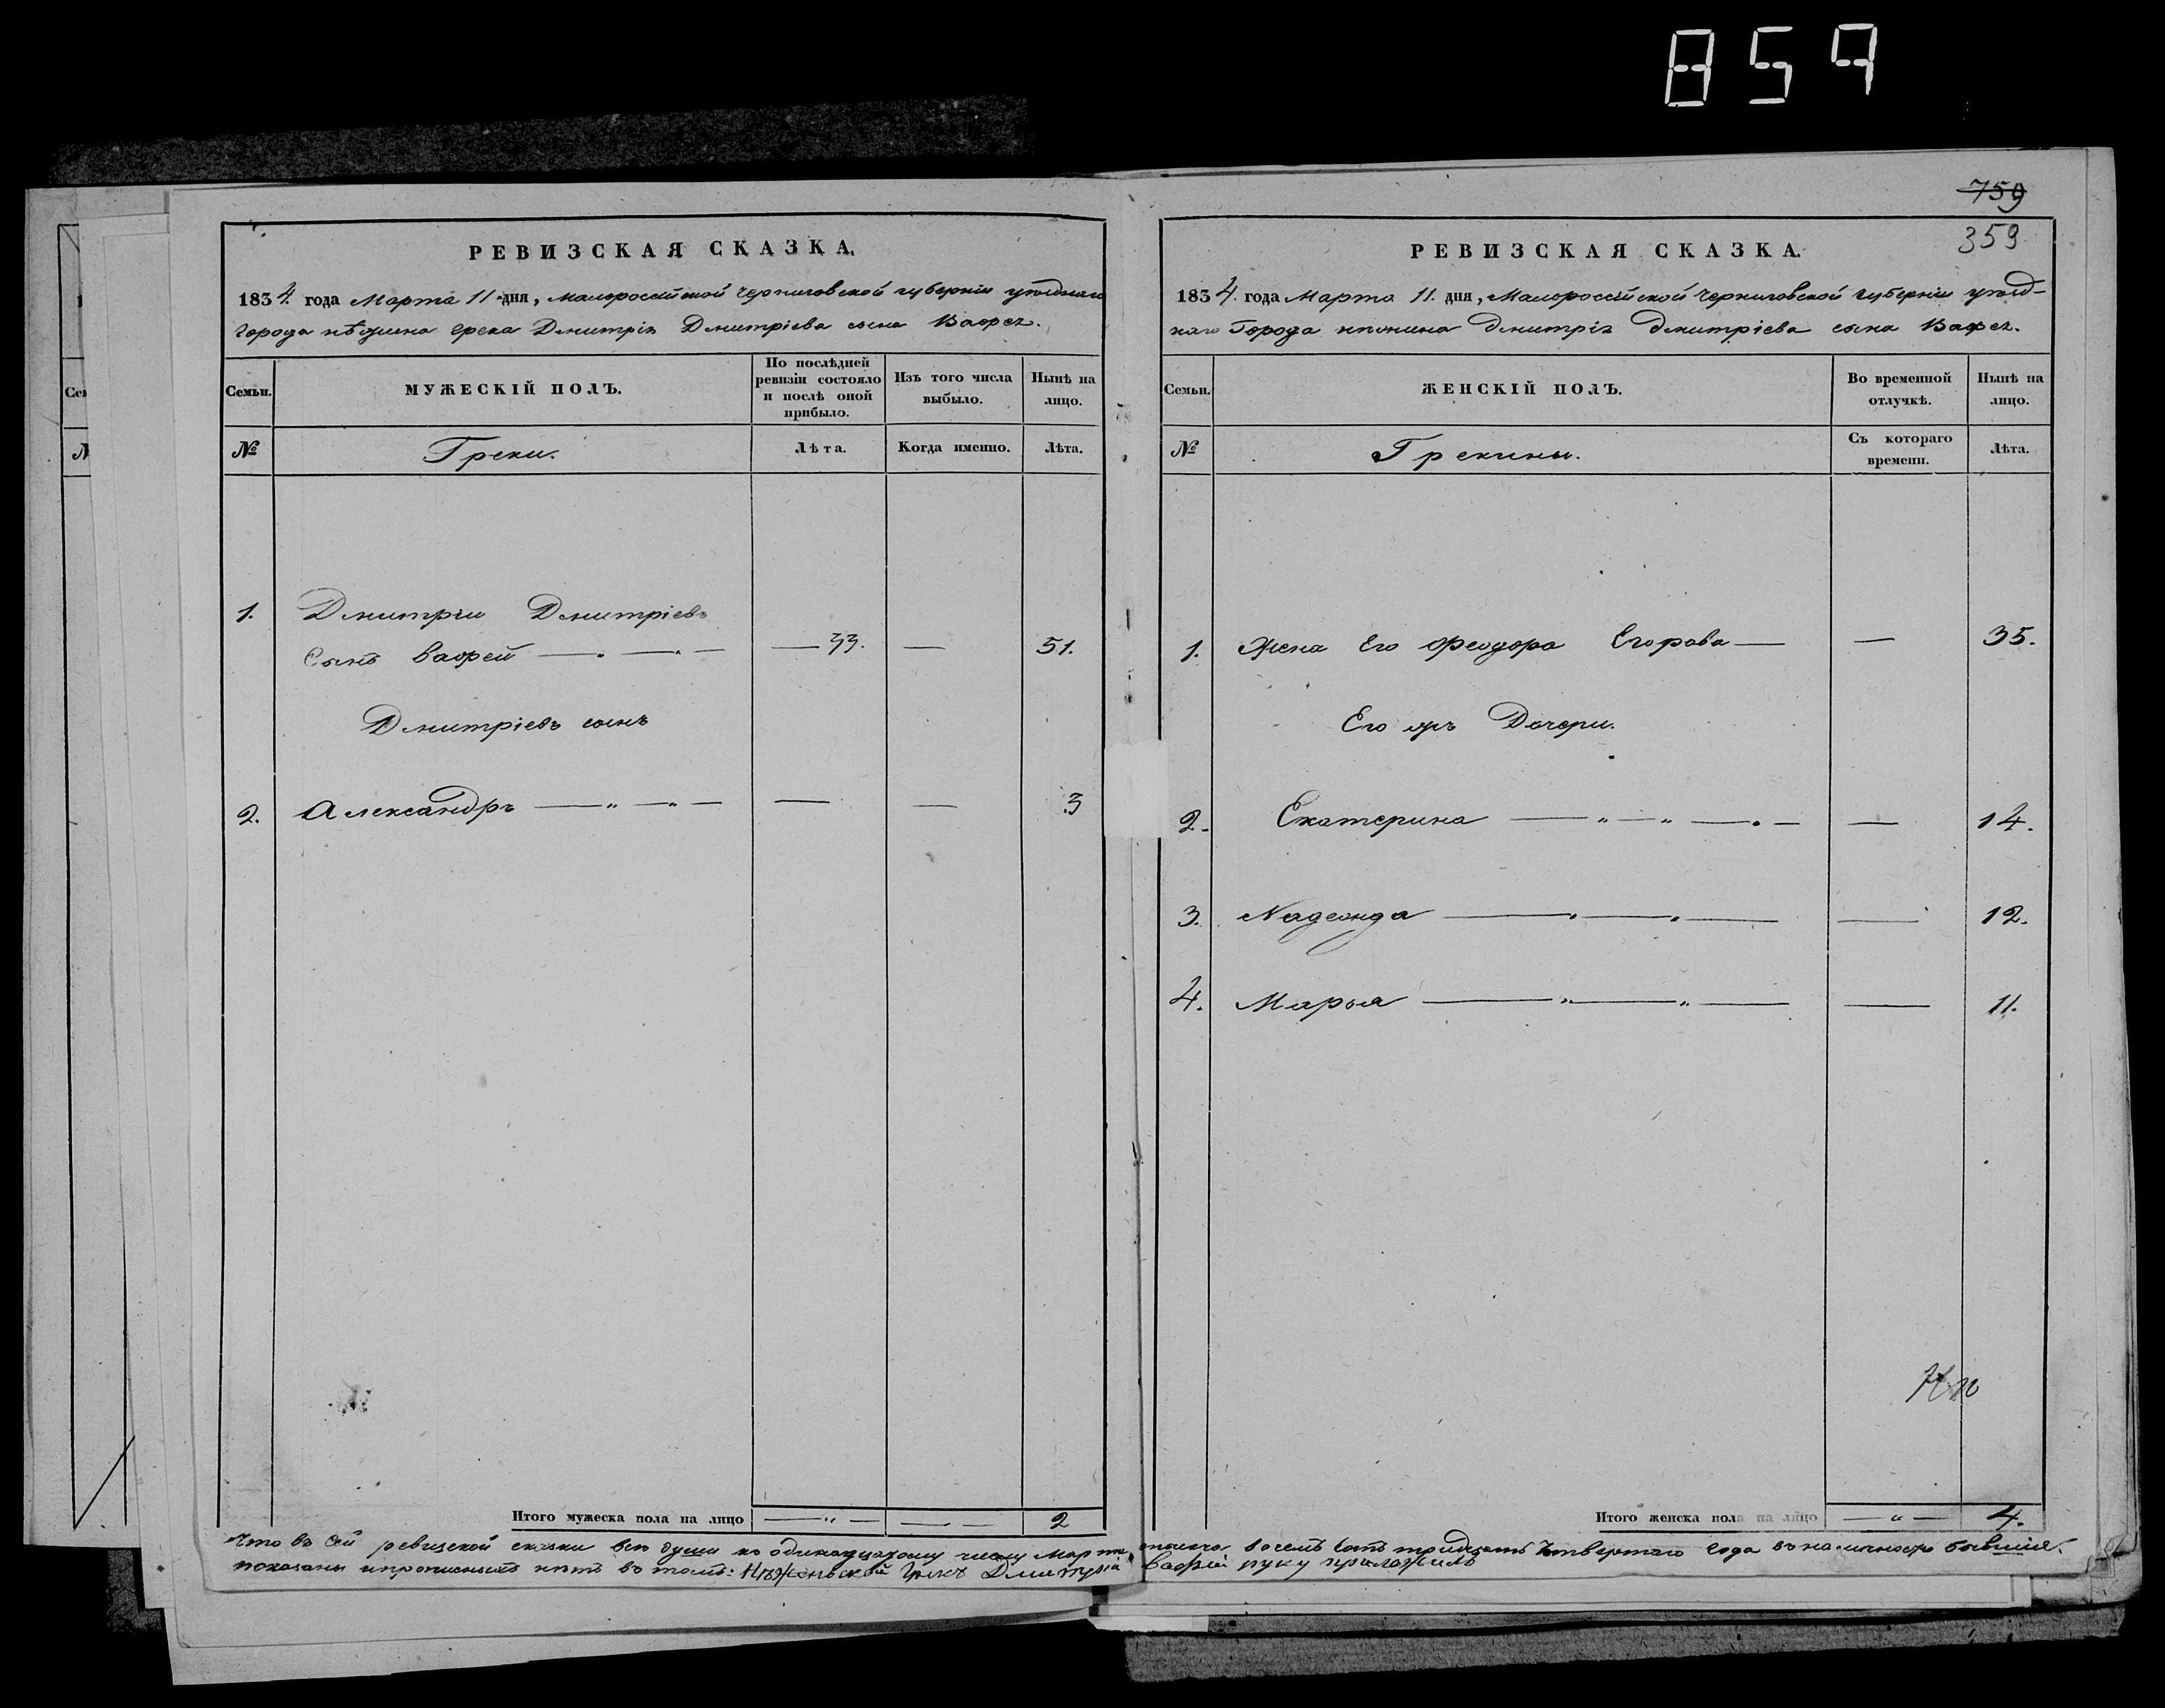 859
759
359
РЕВИЗСКАЯ СКАЗКА.
1834. года Марта 11 дня, Малороссійской Черниговской губерніи уѣзднаго
города Нѣжина грека Дмитрія Дмитріева сына Вафея.
Семьи.
МУЖЕСКІЙ ПОЛЪ.
По послѣдней ревизіи состояло и послѣ оной прибыло.
Изъ того числа выбыло.
Нынѣ на лицо.
№
Греки.
Лѣта.
Когда именно.
Лѣта.
1. Дмитрій Дмитріевъ
Сынъ Вафей — 33. — 51.
Дмитріевъ сынъ
2. Александръ — — 3
Итого мужеска пола на лицо — — 2
РЕВИЗСКАЯ СКАЗКА.
1834. года Марта 11. дня, Малороссійской Черниговской губерніи уѣзд-
наго Города Дмитрія Дмитріева сына Вафея.
Семьи.
ЖЕНСКІЙ ПОЛЪ.
Во временной отлучкѣ.
Нынѣ на лицо.
№
Грекини.
Съ котораго времени.
Лѣта.
1. Жена Его Феодора Егорова — — 35.
Его Дочери.
2. Екатерина — — 14.
3. Надежда — — 12.
4. Марья — — 11.
Итого женска пола на лицо — 4.
Что въ сей ревизской сказки всѣ души по одинадцатому числу Марта восемь сотъ тридцать четвертаго года въ наличности бывшія.
показаны въ томъ: Нѣженьской Грекъ Дмитрій Вафей руку приложилъ